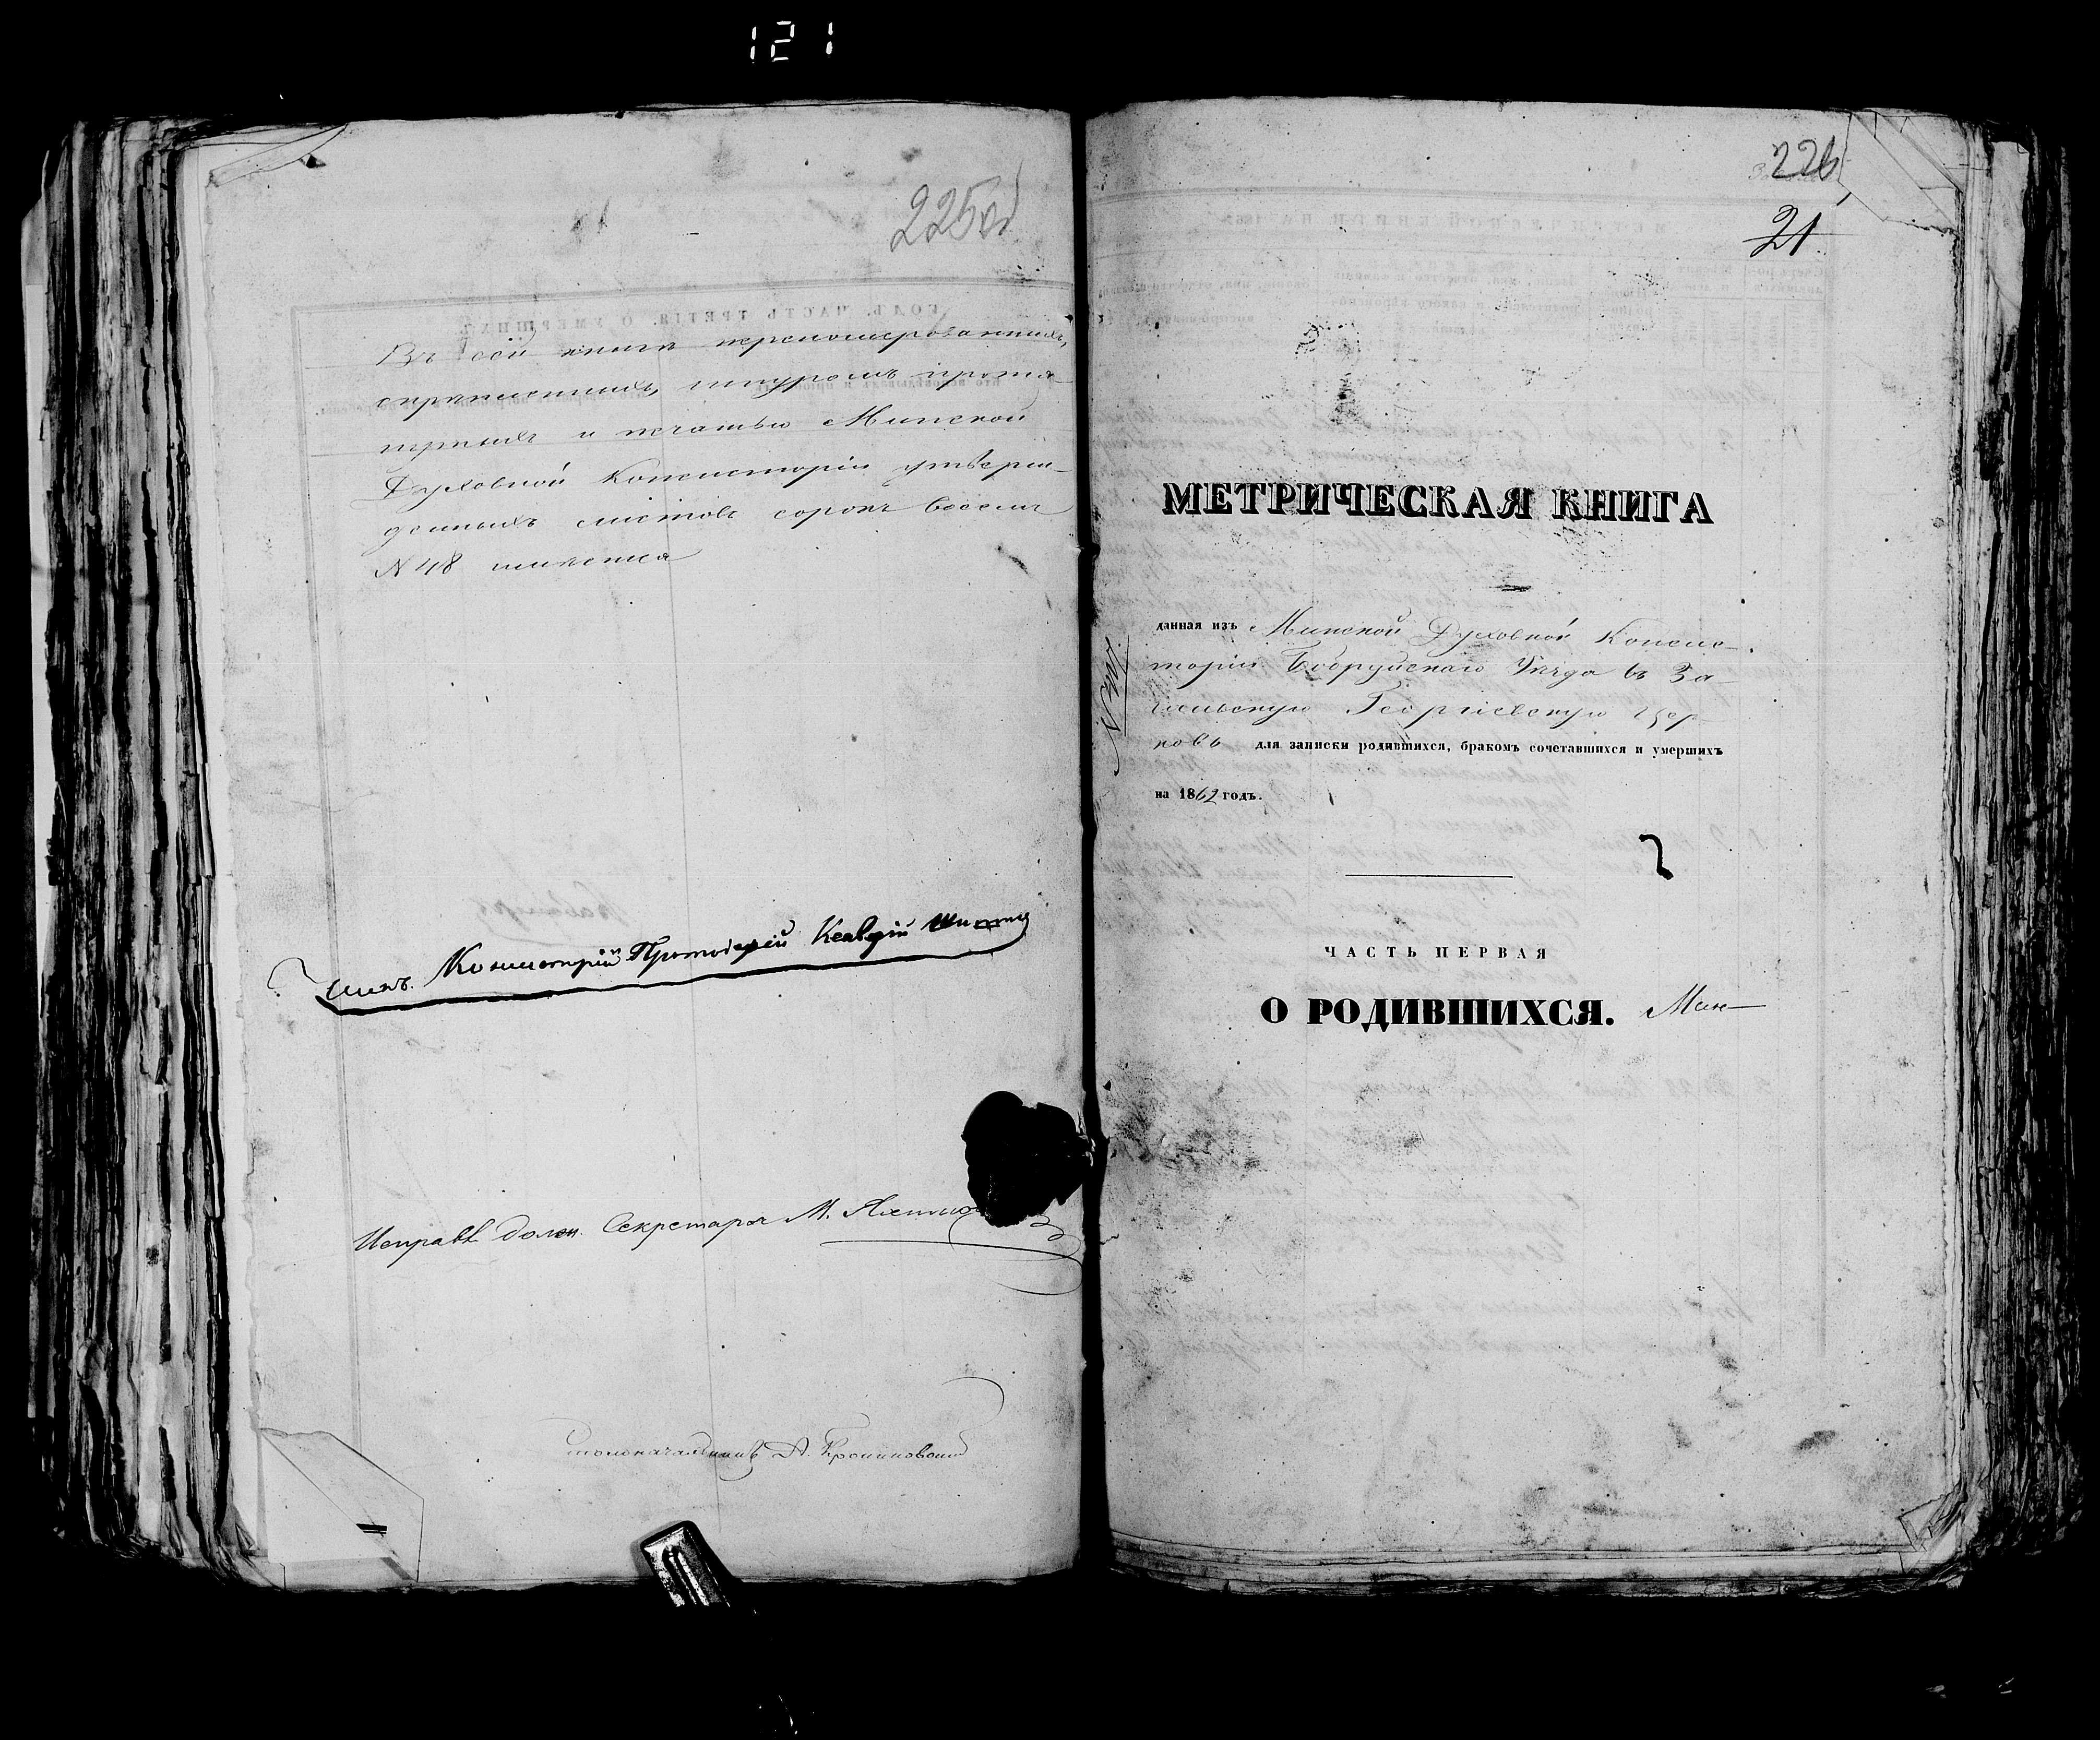 121
225об
Въ сей книге перенумерованныхъ,
скрепленныхъ, шнуромъ прошну-
и печатью Минской
Духовной Консисторіи утверж-
денныхъ листовъ сорокъ восемь
N 48 имеется
Членъ Консисторіи Протоіерей
Исправ. долж. Секретаря М.
Столоначальникъ А.
226
21
МЕТРИЧЕСКАЯ КНИГА
данная изъ Минской Духовной Консис-
торіи Бобруйскаго Уезда въ
Георгіевскую Цер-
ковь для записки родившихся, бракомъ сочетавшихся и умершихъ
на 1862 годъ.
ЧАСТЬ ПЕРВАЯ
О РОДИВШИХСЯ. Мин-